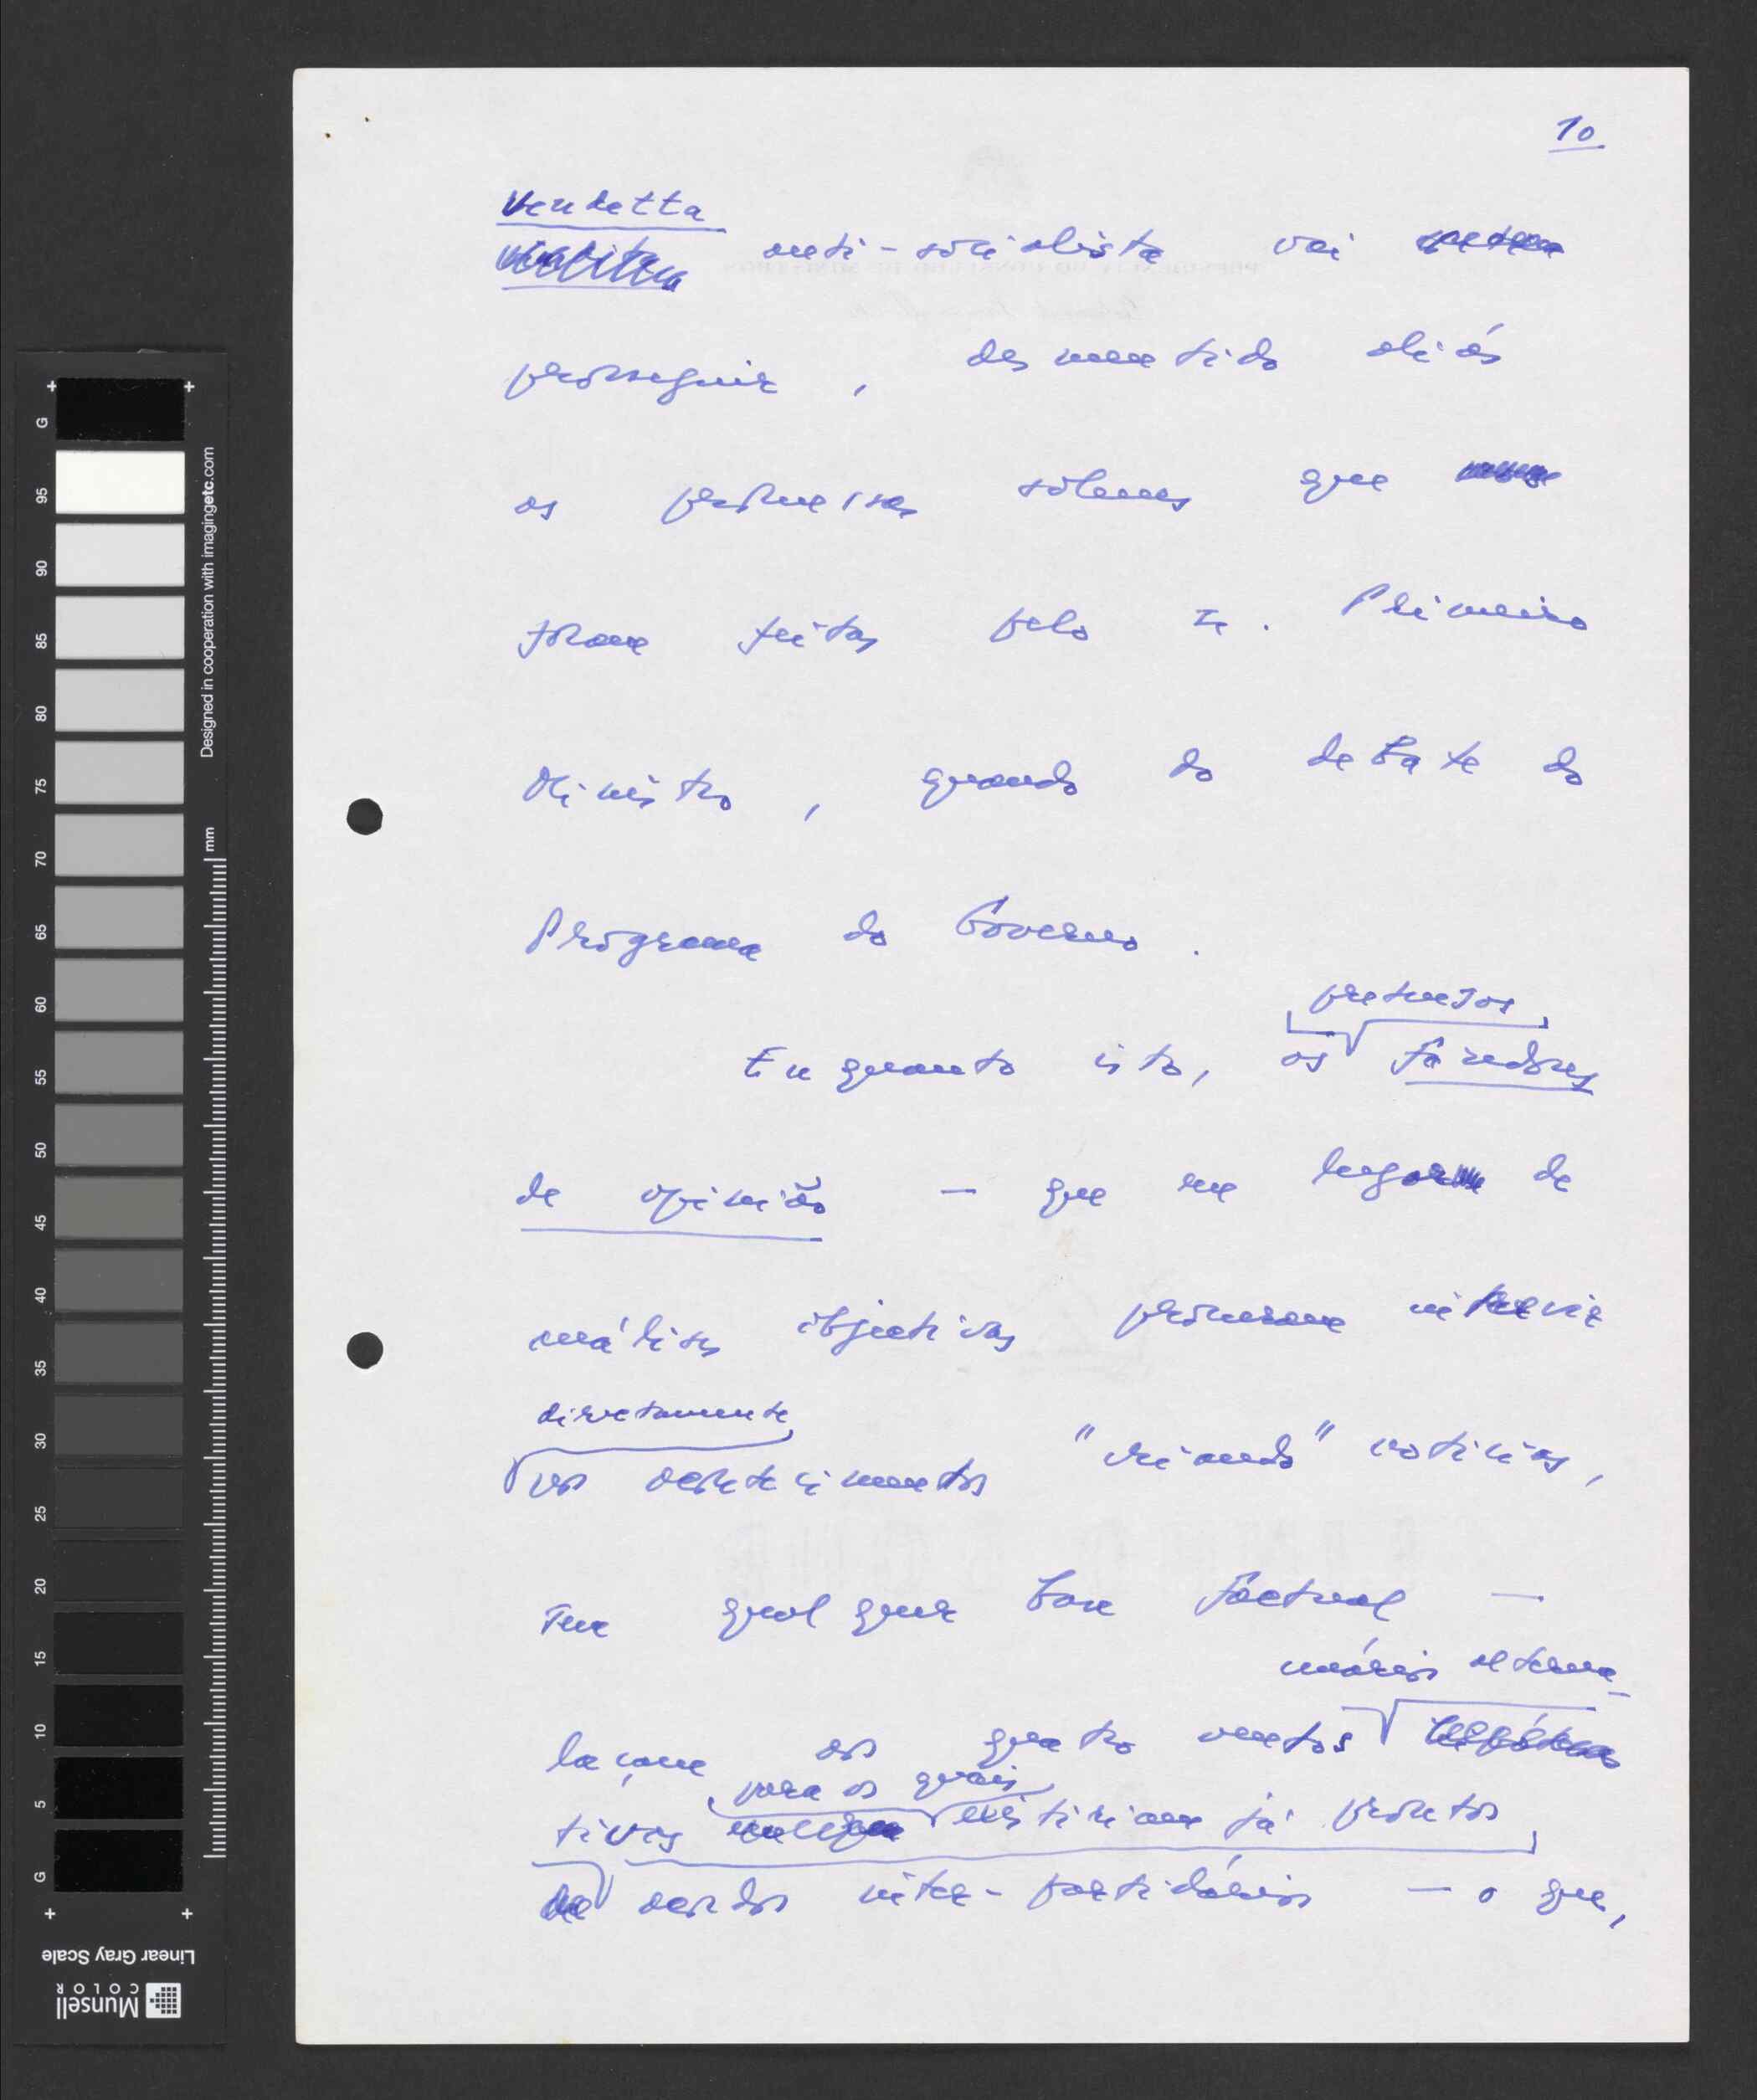 10
Vendetta
anti-socialista vai
prosseguir, desmentido aliás
as promessas solenes que
foram feitas pelo Sr. Primeiro
Ministro, quando do debate do
Programa do Governo.
pretensos
Enquanto isto, os fazedores
de opinião — que em lugar de
análises objectivas procuram intervir
directamente
nos acontecimentos "criando" notícias,
sem qualquer base factual —
cenários alterna-
lançam aos quatro ventos
para os quais
tivas existiriam já prontos
acordos inter-partidários — o que,
G
95
90
85
80
75
70
65
60
55
50
45
40
35
30
25
20
15
10
5
G
Designed in cooperation with imagingetc.com
mm
Linear Gray Scale
Munsell
COLOR